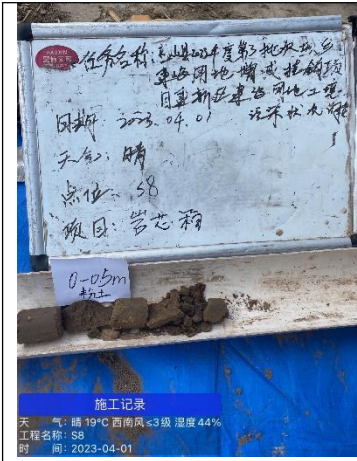 任务名称:山县2022年度第3批次城乡
建设用地增减挂钩项
目建新区建设用地土壤
污染状况调查
日期:2023.04.01
天气:晴
点位:S8
项目:岩芯箱
0-0.5m
粉土
施工记录
天 气:晴 19℃ 西南风≤3级 湿度44%
工程名称:S8
时 间:2023-04-01